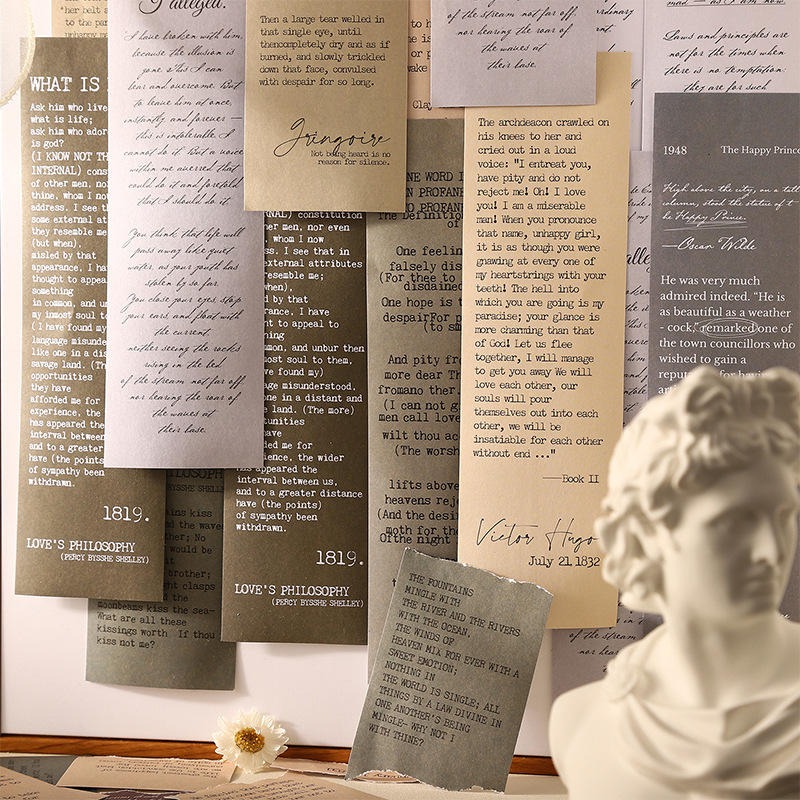 I alleged.
I have broken with him,
because the illusion is
gone & this I can
bear and overcome. But
to leave him at once,
instantly and forever —
this is intolerable. I
cannot do it. But a voice
within me averred that
could do it and foretold
that I should do it.
You think that life will
pass away like quiet
water, as your youth has
stolen by so far.
You close your eyes, stop
your ears, and float with
the current,
neither seeing the rocks
rising in the bed
of the stream not far off
nor hearing the roar of
the waves at
their base.
WHAT IS
Ask him who live
what is life;
ask him who ador
is god?
(I KNOW NOT TH
INTERNAL) const
of other men, no
thine, whom I no
address. I see th
some external at
they resemble me
(but when),
misled by that
appearance, I ha
thought to appea
something
in common, and un
my inmost soul to
(I have found my
language misunde
like one in a dis
savage land. (Th
opportunities
they have
afforded me for
experience, the
has appeared the
interval between
and to a greater
have (the points
of sympathy been
withdrawn.
1819.
LOVE'S PHILOSOPHY
(PERCY BYSSHE SHELLEY)
Then a large tear welled in
that single eye, until
thencompletely dry and as if
burned, and slowly trickled
down that face, convulsed
with despair for so long.
Gringoire
Not being heard is no
reason for silence.
NAL) constitution
her men, nor even
, whom I now
ss. I see that in
external attributes
resemble me;
when),
d by that
rance, I have
ht to appeal to
hing
mmon, and unbur then
most soul to them.
ve found my)
age misunderstood,
one in a distant and
e land. (The more)
tunities
have
ded me for
ience, the wider
has appeared the
interval between us,
and to a greater distance
have (the points)
of sympathy been
withdrawn.
1819.
LOVE'S PHILOSOPHY
(PERCY BYSSHE SHELLEY)
of the stream not far off
nor hearing the roar of
the waves at
their base.
NE WORD I
N PROFANE
O PROFANE
The Definition
of
One feelin
falsely dis
(For thee to
disdained
One hope is t
despairFor p
(to sm
And pity fr
more dear Th
fromano ther.
(I can not gi
men call love
wilt thou ac
(The worsh
lifts above
heavens rej
(And the desi
moth for the
Ofthe night
The archdeacon crawled on
his knees to her and
cried out in a loud
voice: "I entreat you,
have pity and do not
reject me! Oh! I love
you! I am a miserable
man! When you pronounce
that name, unhappy girl,
it is as though you were
gnawing at every one of
my heartstrings with your
teeth! The hell into
which you are going is my
paradise; your glance is
more charming than that
of God! Let us flee
together, I will manage
to get you away We will
love each other, our
souls will pour
themselves out into each
other, we will be
insatiable for each other
without end ..."
——Book II
Victor Hugo
July 21,1832
Laws and principles are
not for the times when
there is no temptation:
they are for such
1948 The Happy Prince
High above the city, on a tall
column, stood the statue of t
he Happy Prince.
—Oscar Wilde
He was very much
admired indeed. "He is
as beautiful as a weather
- cock," remarked one of
the town councillors who
wished to gain a
reputation for having
arti
PHILOSOPH
BYSSHE SHELLEY
ains kiss
d the wave
ther; No
would be
it
brother;
ght clasps
the
moonbeams kiss the sea-
What are all these
kissings worth If thou
kiss not me?
THE FOUNTAINS
MINGLE WITH
THE RIVER AND THE RIVERS
WITH THE OCEAN,
THE WINDS OF
HEAVEN MIX FOR EVER WITH A
SWEET EMOTION;
NOTHING IN
THE WORLD IS SINGLE; ALL
THINGS BY A LAW DIVINE IN
ONE ANOTHER'S BEING
MINGLE- WHY NOT I
WITH THINE?
of the stream
nor hear